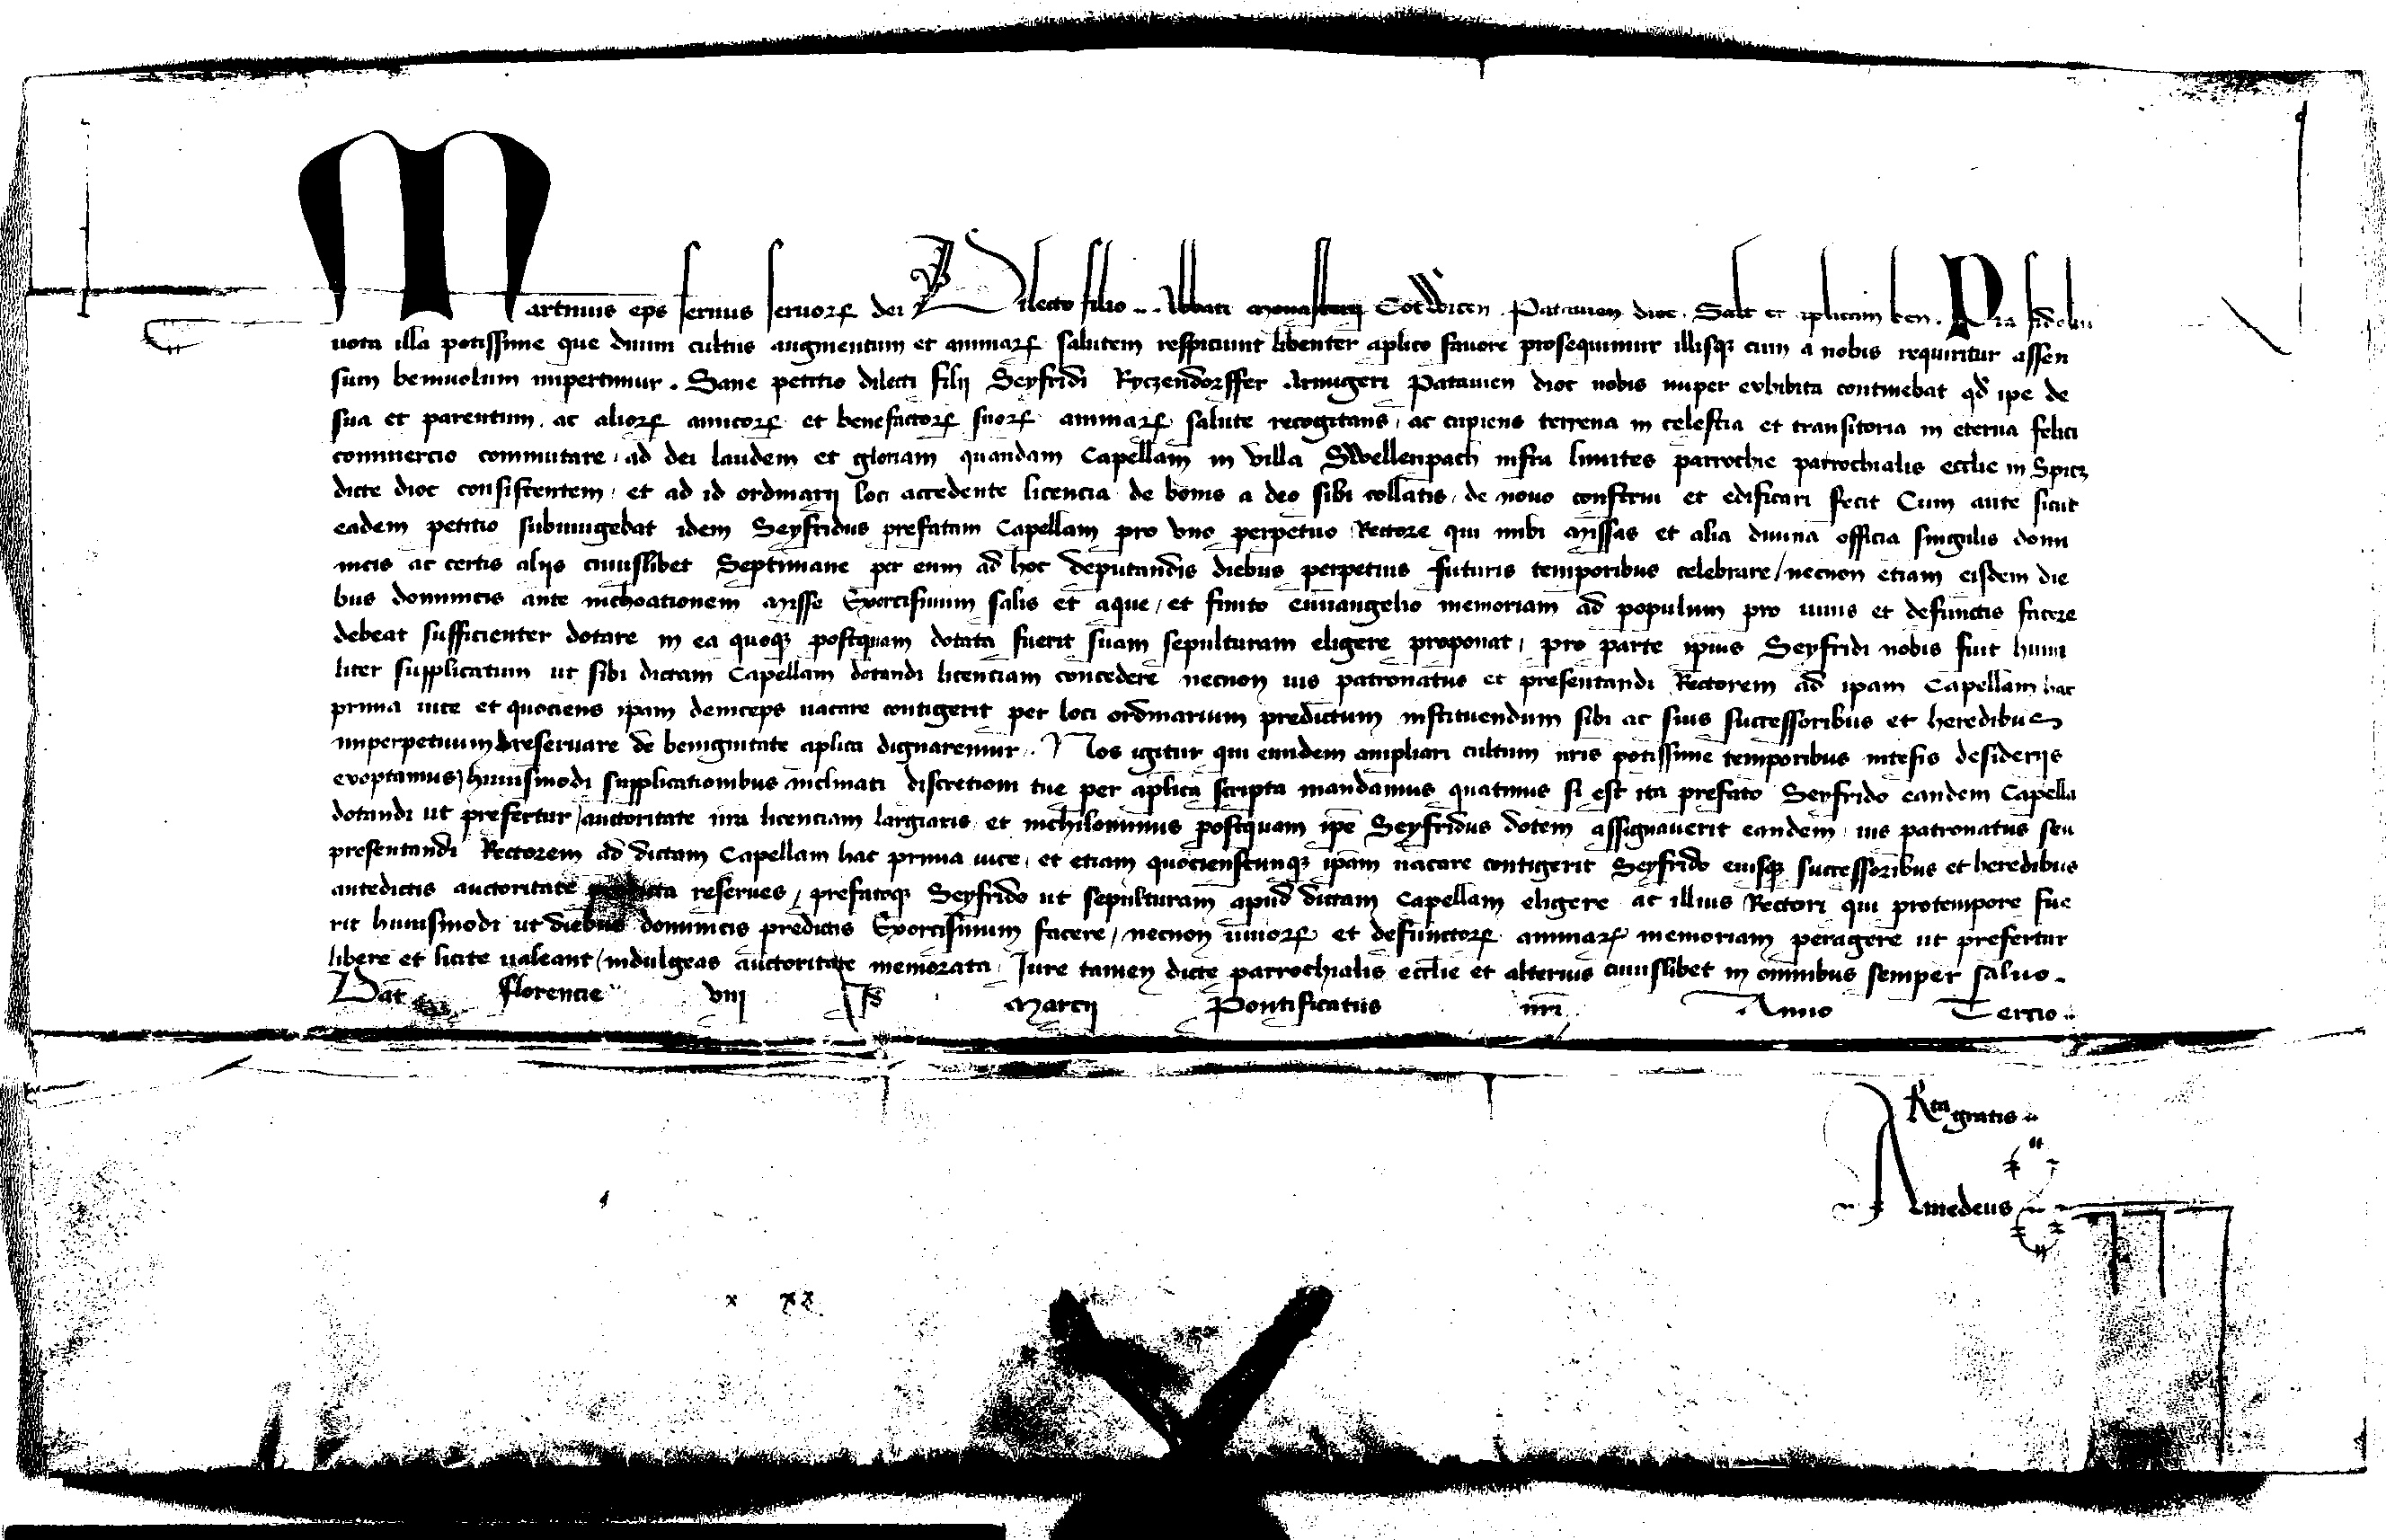 Martinus eps seruus seruoꝝ dei Dilecto filio .. Abbati Monasterij Cotwicen Patauien dioc. Salt et aplicam ben. Pia fideliu
uota illa potissime que diuini cultus augmentum et animaꝝ salutem respiciunt libenter aplico fauore prosequimur illisqꝫ cum a nobis requiritur assen
sum beniuolum impertimur. Sane petitio dilecti filij Seyfridi Ryczendorffer Armigeri Patauien dioc nobis nuper exhibita continebat qd ipe de
sua et parentum, ac alioꝝ amicoꝝ et benefactoꝝ suoꝝ animaꝝ salute recogitans, ac cupiens terrena in celestia et transitoria in eterna felici
commercio commutare, ad dei laudem et gloriam quandam Capellam in villa Swellenpach infra limites parrochie parrochialis ecclie in Spicz
dicte dioc consistentem, et ad id ordinarij loci accedente licencia de bonis a deo sibi collatis, de nouo construi et edificari fecit Cum aute sicut
eadem petitio subiungebat idem Seyfridus prefatam Capellam pro vno perpetuo Rectore qui inibi Missas et alia diuina officia singulis domi
nicis ac certis alijs cuiuslibet Septimane per eum ad hoc deputandis diebus perpetuis futuris temporibus celebrare/ necnon etiam eisdem die
bus dominicis ante inchoationem Misse Exorcismum salis et aque, et finito euuangelio memoriam ad populum pro uiuis et defunctis facere
debeat sufficienter dotare in ea quoqꝫ postquam dotata fuerit suam sepulturam eligere proponat, pro parte ipius Seyfridi nobis fuit humi
liter supplicatum ut sibi dictam Capellam dotandi licentiam concedere necnon ius patronatus et presentandi Rectorem ad ipam Capellam hac
prima uice et quociens ipam deinceps uacare contigerit per loci ordinarium predictum instituendum sibi ac suis successoribus et heredibus
imperpetuum reseruare de benignitate aplica dignaremur. Nos igitur qui eundem ampliari cultum nris potissime temporibus intesis desiderijs
exoptamus, huiusmodi supplicationibus inclinati discretioni tue per aplica scripta mandamus quatinus si est ita prefato Seyfrido eandem Capella
dotandi ut prefertur/ auctoritate nra licenciam largiaris, et nichilominus postquam ipe Seyfridus dotem assignauerit eandem, ius patronatus seu
presentandi Rectorem ad dictam Capellam hac prima uice, et etiam quocienscunqꝫ ipam uacare contigerit Seyfrido eiusqꝫ successoribus et heredibus
antedictis auctoritate predicta reserues, prefatoqꝫ Seyfrido ut sepulturam apud dictam Capellam eligere ac illius Rectori qui protempore fue
rit huiusmodi ut diebus dominicis predictis Exorcismum facere, necnon uiuoꝝ et defunctoꝝ animaꝝ memoriam peragere ut prefertur
libere et licite ualeant, indulgeas auctoritate memorata, Iure tamen dicte parrochialis ecclie et alterius cuiuslibet in omnibus semper saluo.
Dat Florencie viij Is Marcij Pontificatus nri Anno Tercio..
Rta gratis..
Amedeus
x xx